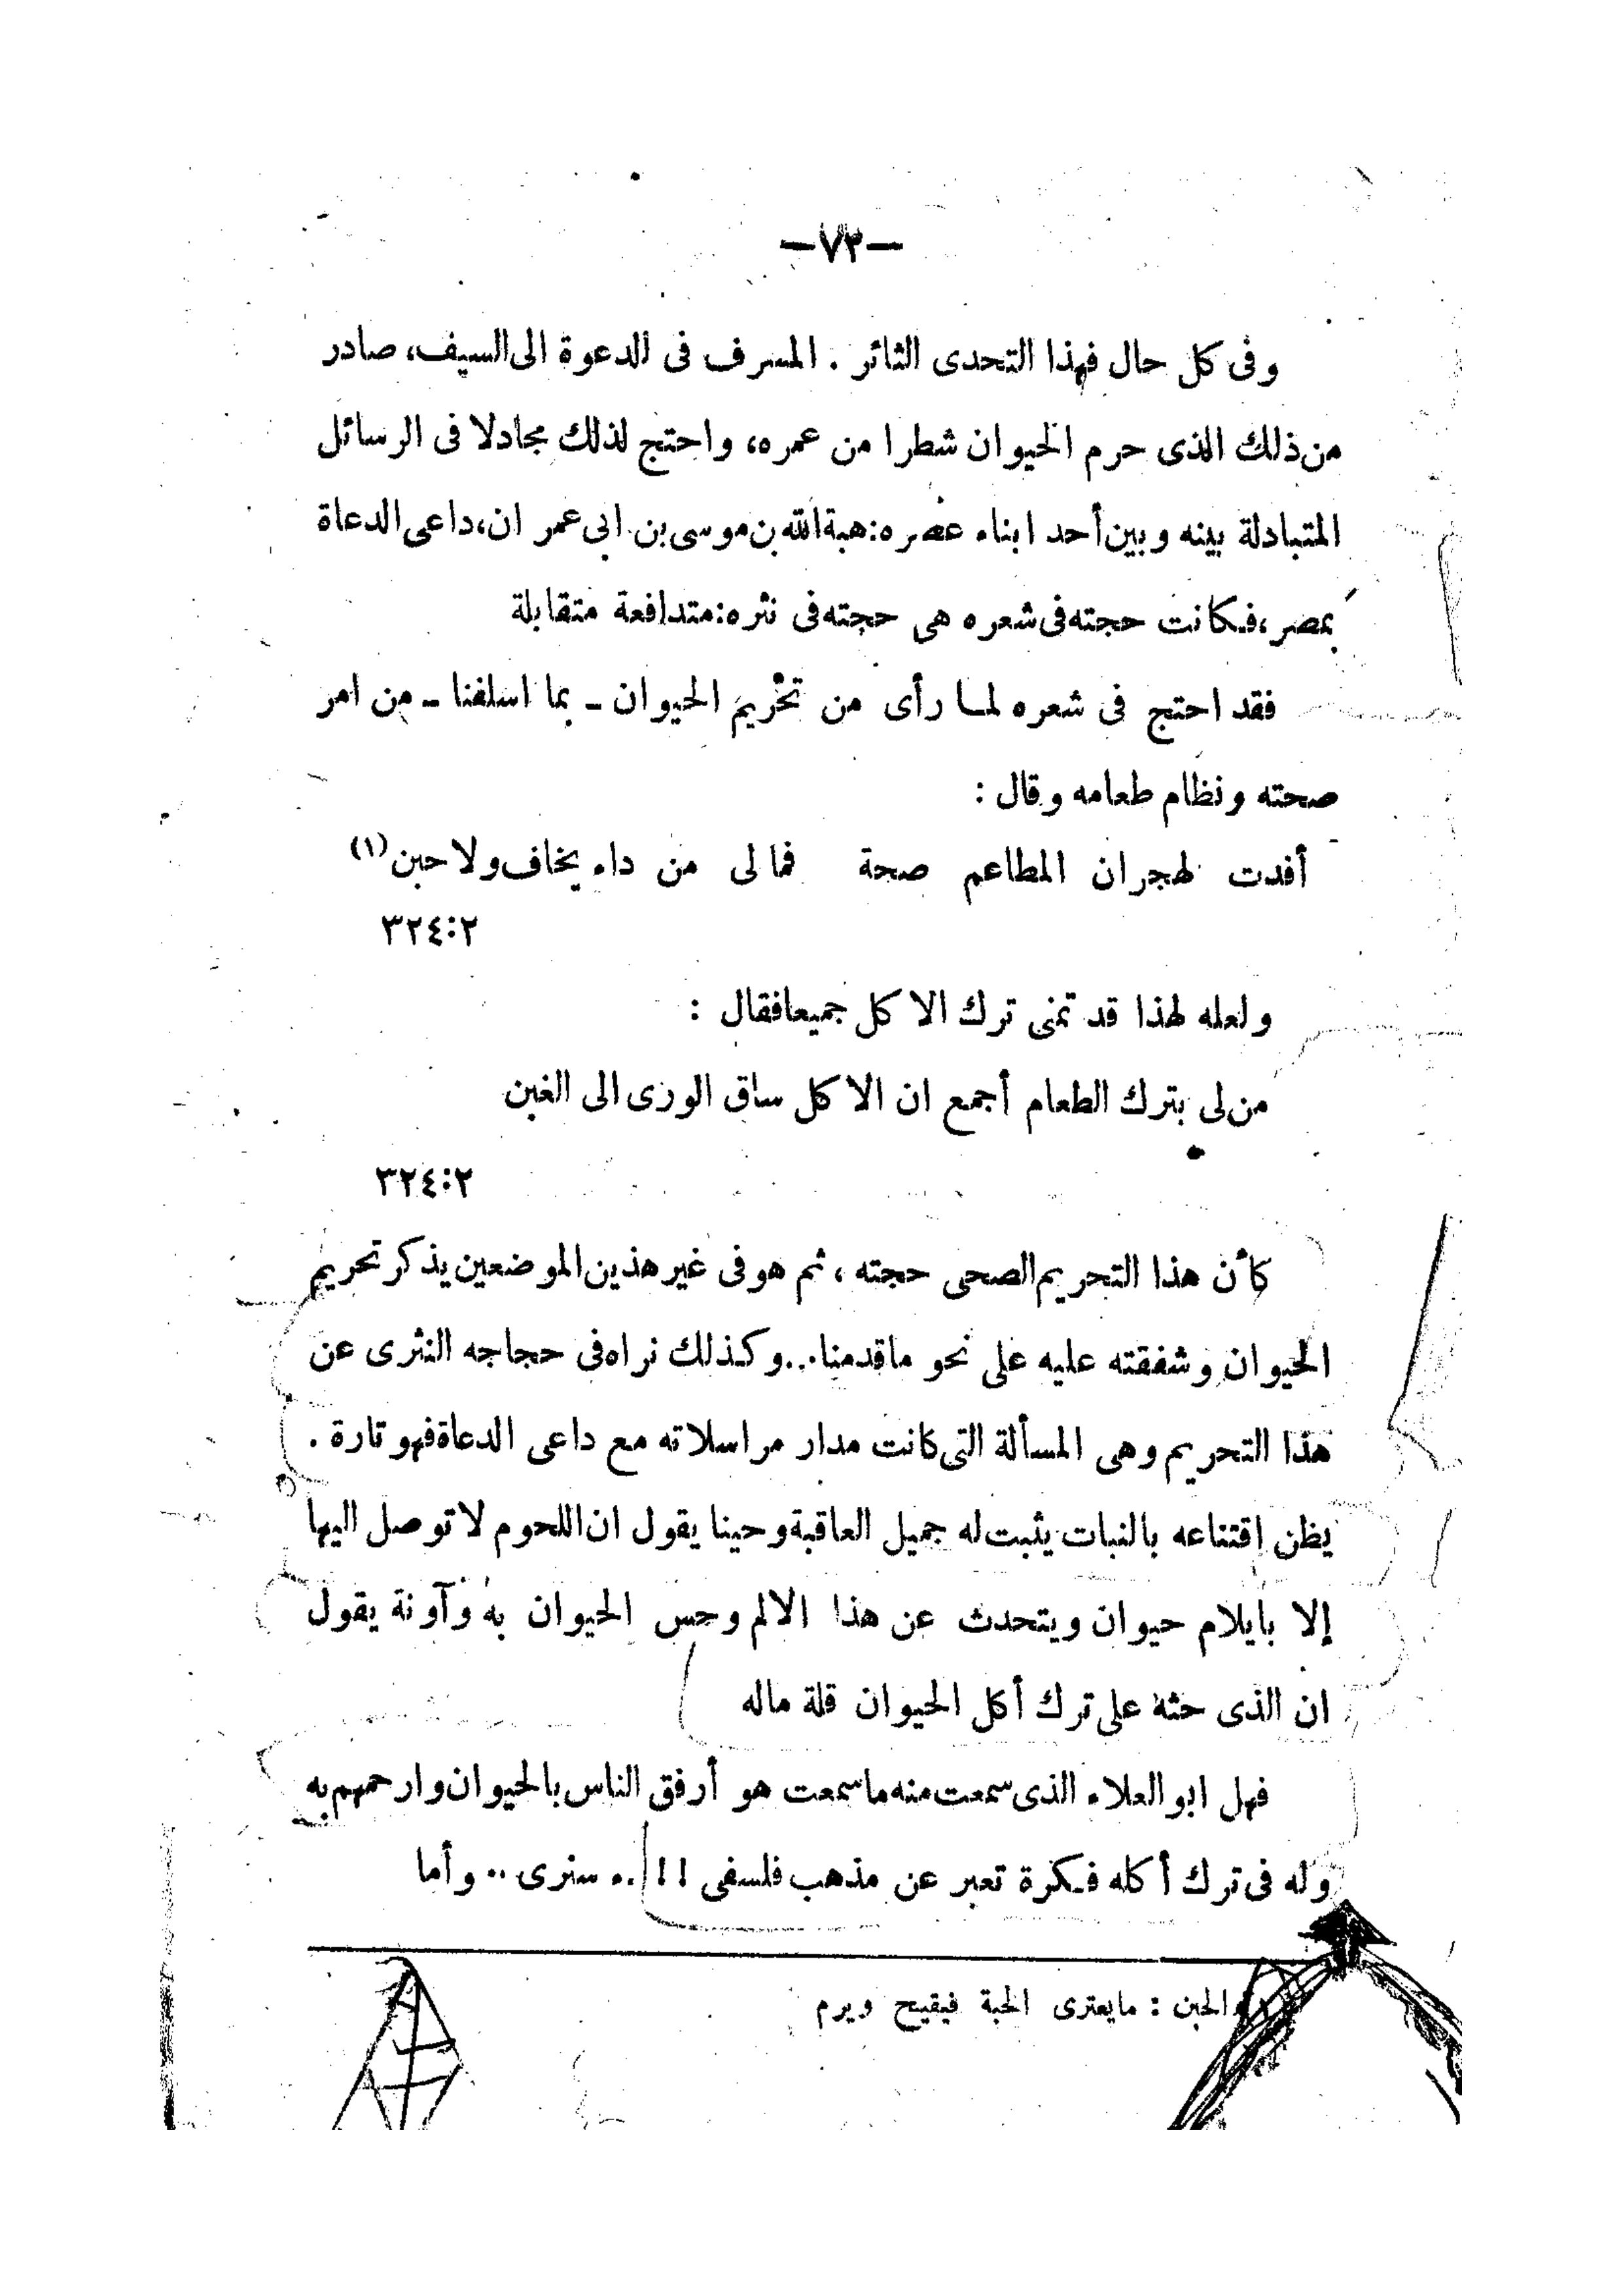 —٧٣—
وفى كل حال فهذا التحدى الثائر . المسرف فى الدعوة الى السيف، صادر
من ذلك الذى حرم الحيوان شطرا من عمره، واحتج لذلك مجادلا فى الرسائل
المتبادلة بينه وبين أحد ابناء عصره: هبة الله بن موسى بن ابى عمران، داعى الدعاة
بمصر، فكانت حجته فى شعره هى حجته فى نثره: متدافعة متقابلة
فقد احتج فى شعره لما رأى من تحريم الحيوان ـ بما اسلفنا ـ من امر
صحته ونظام طعامه وقال :
أفدت لهجران المطاعم صحة فمالى من داء يخاف ولا حبن (١)
٣٢٤:٢
ولعله لهذا قد تمنى ترك الاكل جميعا فقال :
من لى بترك الطعام أجمع ان الاكل ساق الورى الى الغبن
٣٢٤:٢
كأن هذا التحريم الصحى حجته ، ثم هو فى غير هذين الموضعين يذكر تحريم
الحيوان وشفقته عليه على نحو ما قدمنا... وكذلك نراه فى حجاجه النثرى عن
هذا التحريم وهى المسألة التى كانت مدار مراسلاته مع داعى الدعاة فهو تارة .
يظن اقتناعه بالنبات يثبت له جميل العاقبة وحينا يقول ان اللحوم لا توصل اليها
إلا بايلام حيوان ويتحدث عن هذا الالم وحس الحيوان به وآونة يقول
ان الذى حثه على ترك أكل الحيوان قلة ماله
فهل ابو العلاء الذى سمعت منه ما سمعت هو أرفق الناس بالحيوان وارحمهم به
وله فى ترك أكله فكرة تعبر عن مذهب فلسفى !! .. سنرى .. وأما
الحبن : ما يعترى الحبة فيقيح ويرم